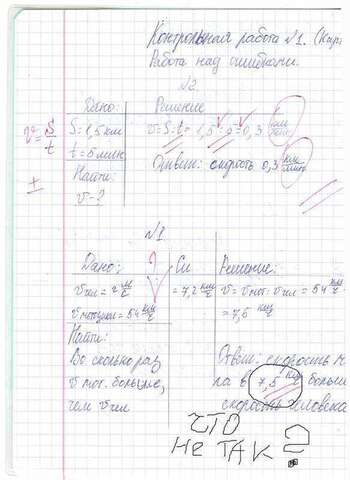 Контрольная работа №1.
Работа над ошибками.
№2.
Дано: Решение
S=1,5км v=S:t= 1,5:5=0,3 км/мин
v=S/t
t=5мин
Ответ: скорость 0,3 км/мин
Найти:
v-?
±
№1
Дано: ? Си Решение:
vчел = = 7,2 км/ч v= vмот: vчел = 54 км/ч
vмотоцикл=54 км/ч =7,5 км/ч
Найти:
Во сколько раз Ответ: скорость м
v мот. больше, ла в 7,5 км/ч больш
чем vчел скорость человека
ЧТО
НЕ ТАК?